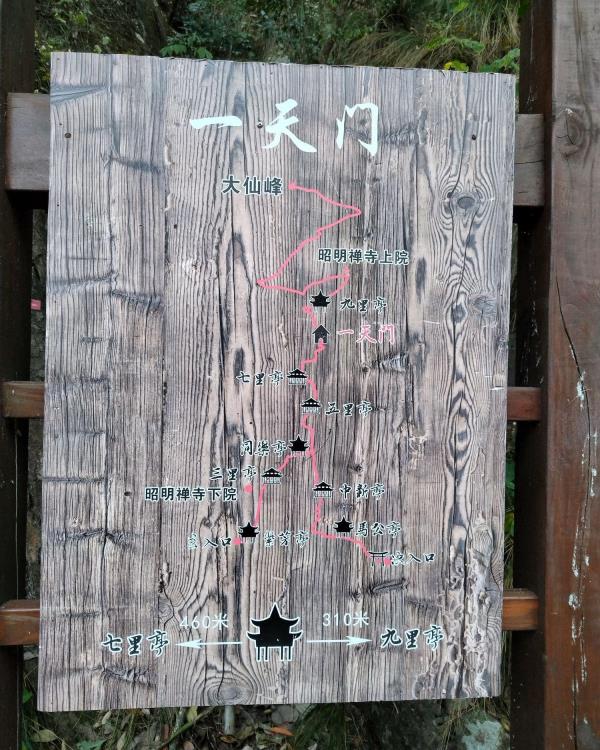 一天门
大仙峰
昭明禅寺上院
九里亭
一天门
七里亭
五里亭
同樂亭
三里亭
中新亭
昭明禅寺下院
馬公亭
入口
入口
460米
310米
七里亭
九里亭